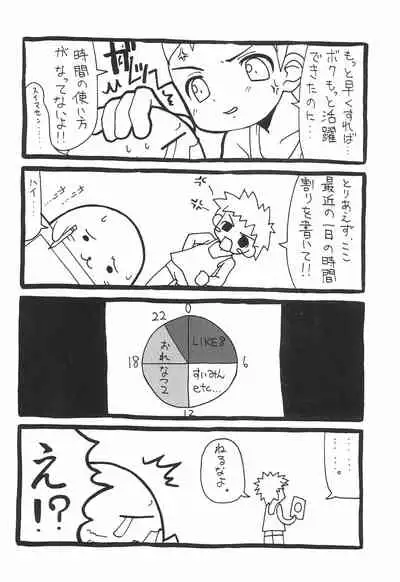 もっと早くすれば…
ボクもっと活躍
できたのに…
ガッ
時間の使い方
がなってないよ!!
スイマセン……
とりあえず、ここに
最近の一日の時間
割りを書いて!!
ハイ…
0
22
LIKE8
6
おれ
18
なつ2
すいみん
etc…
12
……。
……。
ねるなよ。
え!?